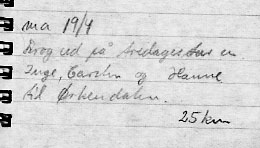 ma 19/4
Drog ud på tredagestur en
Inge, Carsten og Hanne
til Ørkendalen.
25km